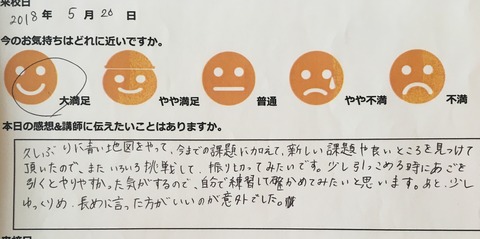 来校日
2018年 5月 20日
今のお気持ちはどれに近いですか。
大満足 やや満足 普通 やや不満 不満
本日の感想&講師に伝えたいことはありますか。
久しぶりに青い地図をやって、今までの課題に加えて、新しい課題や良いところを見つけて
頂いたので、また いろいろ挑戦して、振り切ってみたいです。少し引っこめる時にあごを
引くとやりやすかった気がするので、自分で練習して確かめてみたいと思います。あと、少し
ゆっくりめ、長めに言った方がいいのが意外でした。
来校日